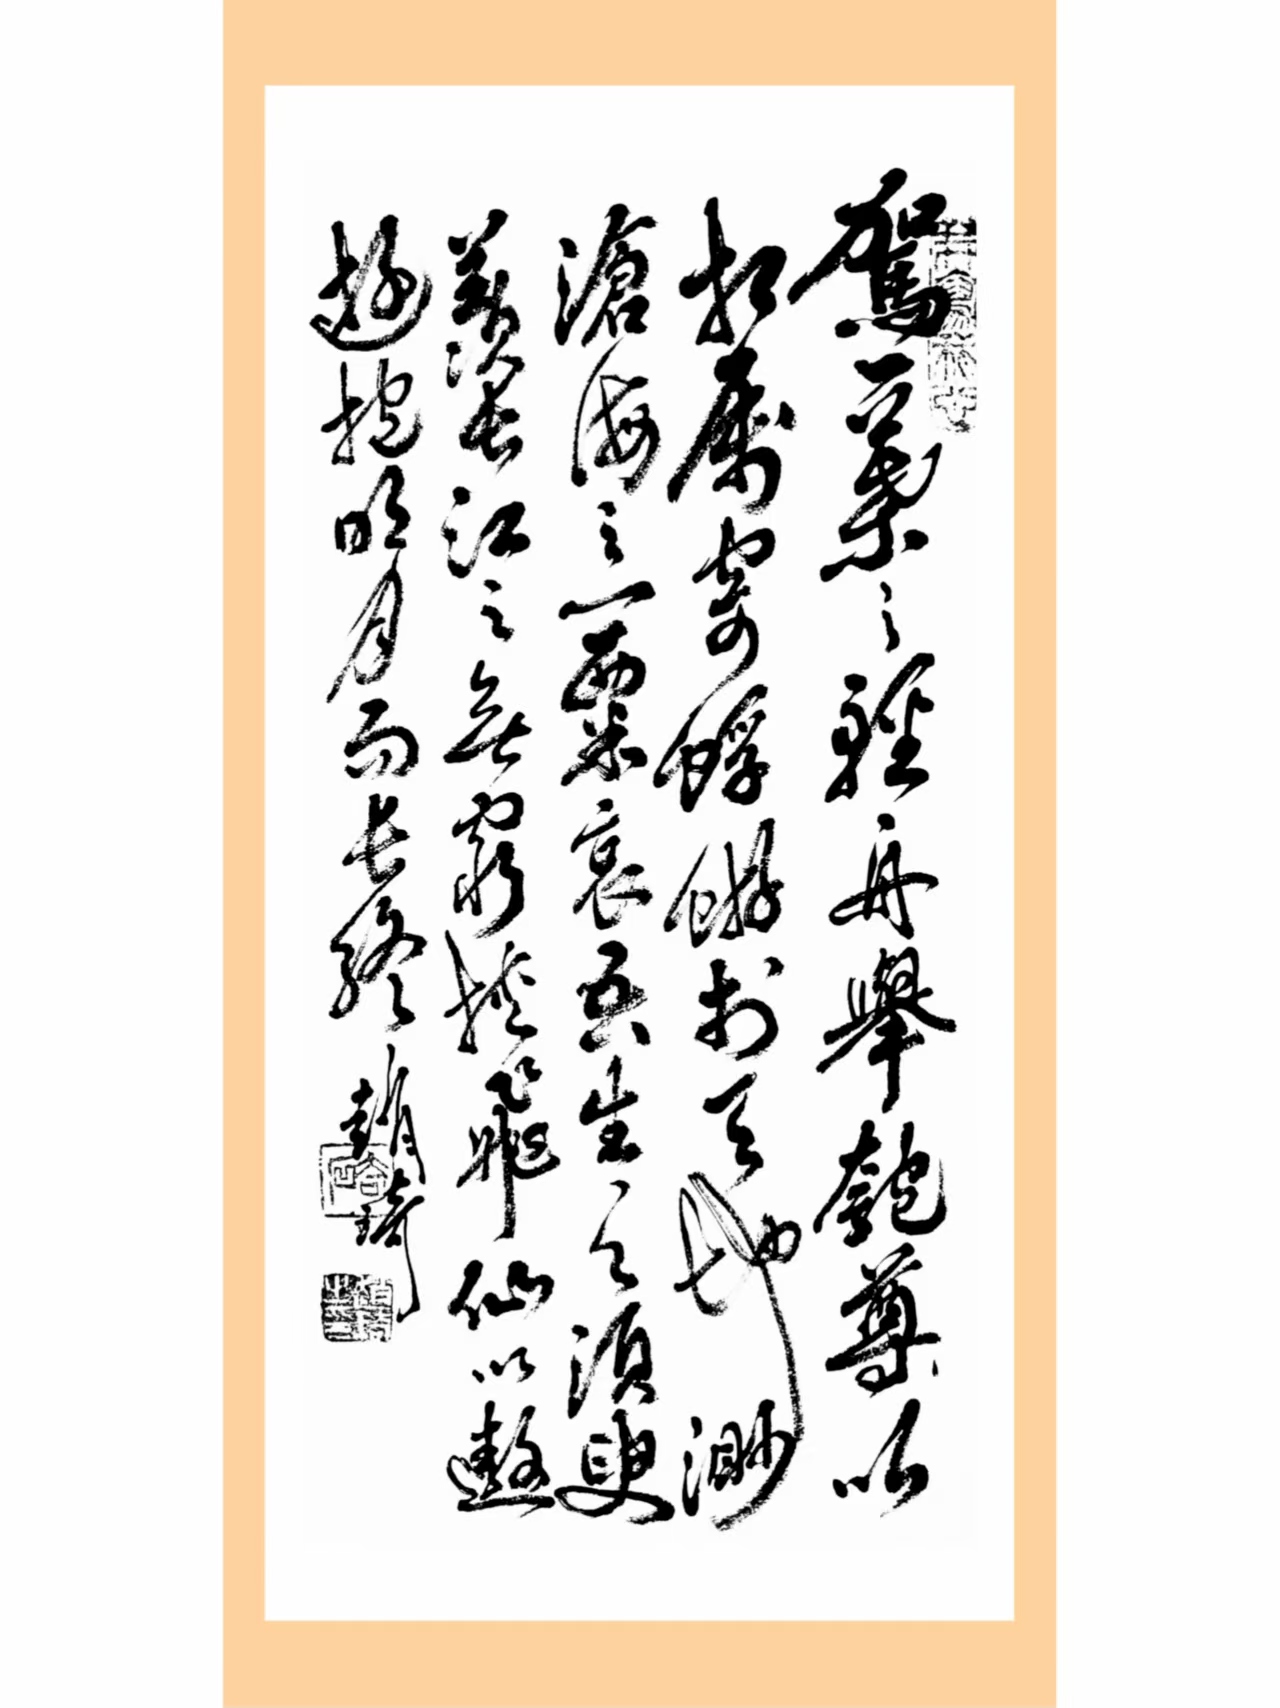 駕一葉之輕舟舉匏尊以
相屬寄蜉蝣於天地渺
滄海之一粟哀吾生之須臾
羨長江之無窮挾飛仙以遨
遊抱明月而長終 趙琦